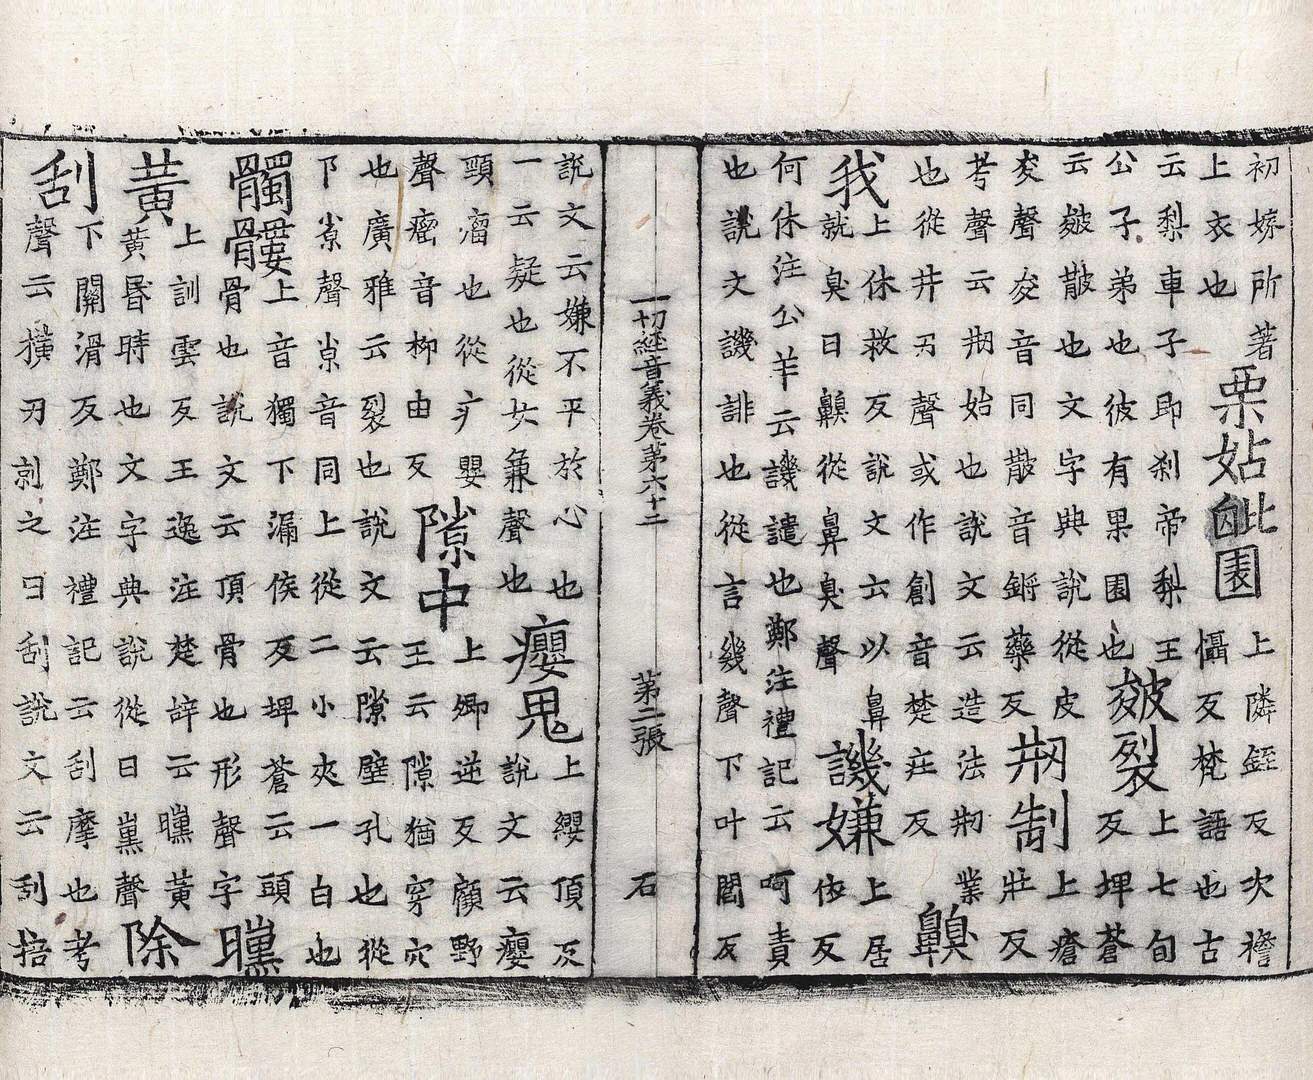 初嫁所著
上衣也
栗姑毗園
上隣銍反次襜
懾反梵語也古
云梨車子即剎帝梨王
公子弟也彼有果園也
皴裂
上七旬
反埤蒼
云皴皵也文字典說從皮
夋聲夋音同皵音鏘藥反
剏制
上瘡
壯反
考聲云剏始也說文云造法剏業
也從井刅聲或作創音楚莊反
齅
我
上休救反說文六以鼻
就臭曰齅從鼻臭聲
譏嫌
上居
依反
何休注公羊云譏譴也鄭注禮記云呵責
也說文譏誹也從言幾聲下叶閻反
一切經音義卷第六十二 第二張 石
說文云嫌不平於心也
一云疑也從女兼聲也
癭鬼
上纓頂反
說文云癭
頸瘤也從疒嬰
聲瘤音柳由反
隙中
上卿逆反顧野
王云隙猶穿穴
也廣雅云裂也說文云隙壁孔也從
聲音同上從二小夾一白也
髑髏
上音獨下漏侯反埤蒼云頭
骨也說文云頂骨也形聲字
曛
黃
上訓雲反王逸注楚辭云曛黃
黃昏時也文字典說從日熏聲
除
刮
下關滑反鄭注禮記云刮摩也考
聲云橫刃之曰刮說文云刮掊